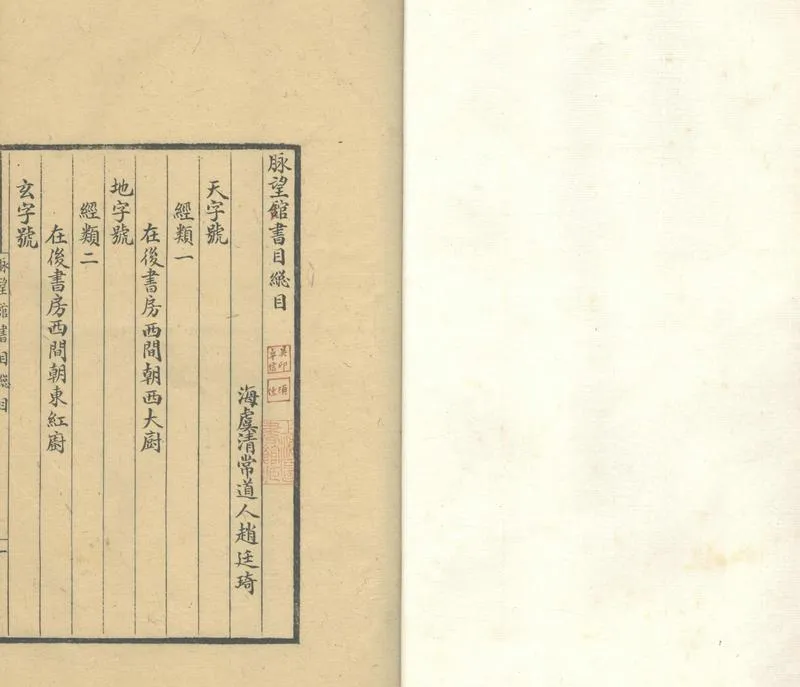 脉望館書目緫目
海虞清常道人趙廷琦
天字號
經類一
在後書房西間朝西大厨
地字號
經類二
在後書房西間朝東紅厨
玄字號
脉望館書目緫目
一